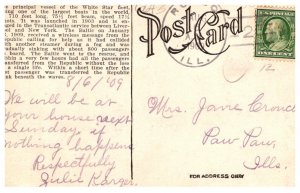 a principal passenger of the White Star fleet
ing one of the largest boats in the world,
710 feet long, 75½ feet beam, speed 17½
ots. It was launched in 1903 and is en-
ged in Transatlantic service between Liver-
ool and New York. The Baltic on January
1909, received a wireless message from the
publis appealing for help as it had collided
ith another steamer during a fog and was
adually sinking with about 800 passengers
board. The Baltic went to the rescue, and
ithin a very few hours all the passengers
ansferred from the Republic without the loss
a single life. Within a short time after the
st passenger was transferred the Republic
nk beneath the waves.
8/6/'09
We will be at
your house next
Sunday if
nothing happens
Respectfully
Julie Karger.
Post Card
ILL.
Mrs. Jane Cronce
Paw Paw,
Ills.
FOR ADDRESS ONLY